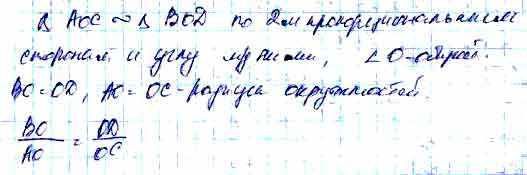 Δ AOC ~ Δ BOD по 2м пропорциональным
сторонам и углу между ними, ∠O-общий.
BO=OD, AO=OC-радиусы окружностей.
BO/AO = OD/OC